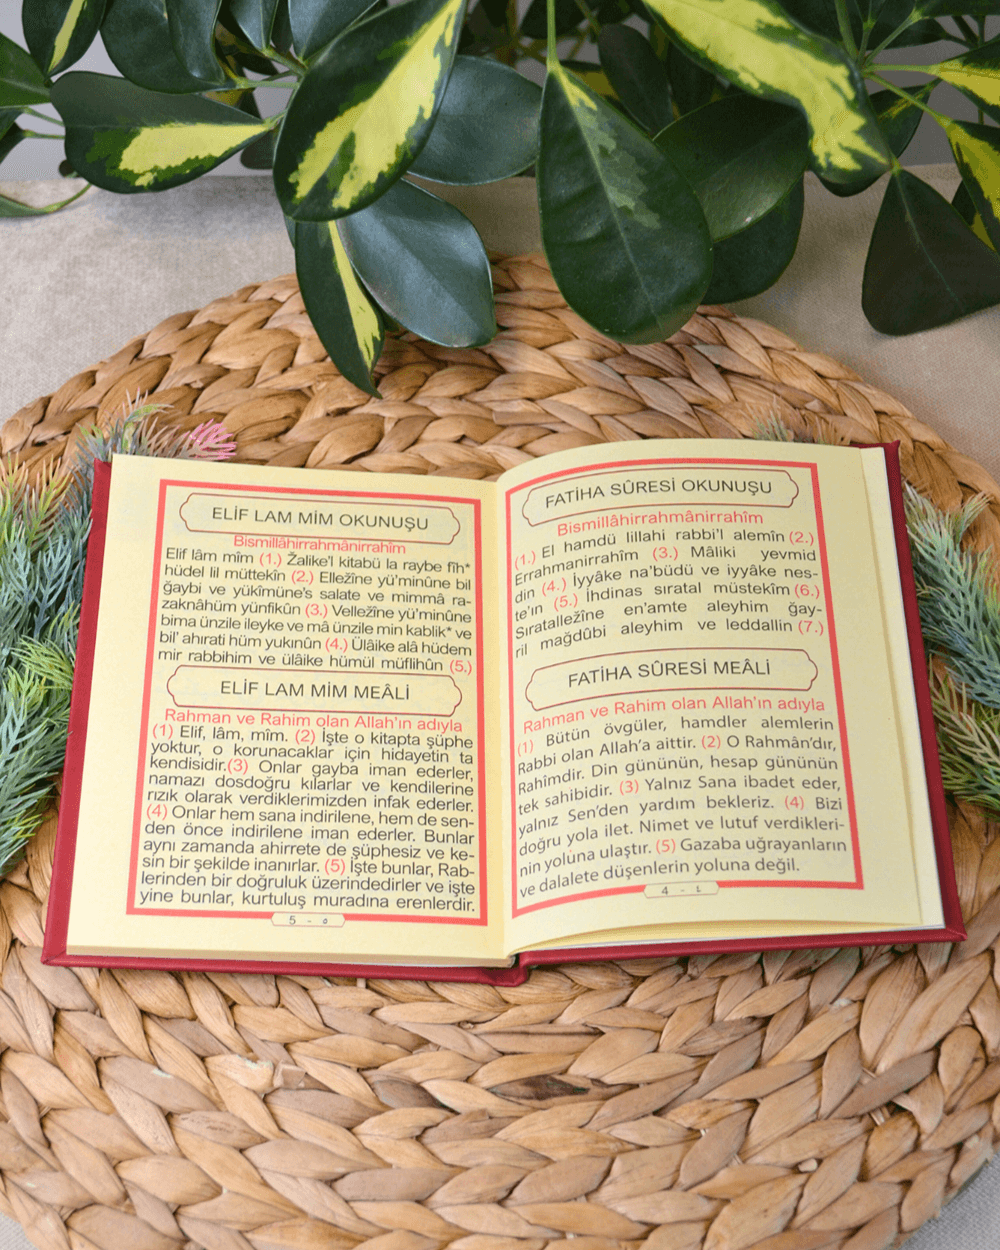 FATİHA SÛRESİ OKUNUŞU
Bismillâhirrahmânirrahîm
(1.) El hamdü lillahi rabbi’l alemîn (2.)
Errahmanirrahîm (3.) Mâliki yevmid
din (4.) İyyâke na’büdü ve iyyâke nes-
te’ın (5.) İhdinas sıratal müstekîm (6.)
Sıratallezîne en’amte aleyhim ğay-
ril mağdûbi aleyhim ve leddallin (7.)
FATİHA SÛRESİ MEÂLİ
Rahman ve Rahim olan Allah’ın adıyla
(1) Bütün övgüler, hamdler alemlerin
Rabbi olan Allah’a aittir. (2) O Rahmân’dır,
Rahîmdir. Din gününün, hesap gününün
tek sahibidir. (3) Yalnız Sana ibadet eder,
yalnız Sen’den yardım bekleriz. (4) Bizi
doğru yola ilet. Nimet ve lutuf verdikleri-
nin yoluna ulaştır. (5) Gazaba uğrayanların
ve dalalete düşenlerin yoluna değil.
4 - ٤
ELİF LAM MİM OKUNUŞU
Bismillâhirrahmânirrahîm
Elif lâm mîm (1.) Žalike’l kitabü la raybe fîh*
hüdel lil müttekîn (2.) Elležîne yü’minûne bil
ğaybi ve yükîmüne’s salate ve mimmâ ra-
zaknâhüm yünfikûn (3.) Velležîne yü’minûne
bima ünzile ileyke ve mâ ünzile min kablik* ve
bil’ ahırati hüm yukınûn (4.) Ülâike alâ hüdem
mir rabbihim ve ülâike hümül müflihûn (5.)
ELİF LAM MİM MEÂLİ
Rahman ve Rahim olan Allah’ın adıyla
(1) Elif, lâm, mîm. (2) İşte o kitapta şüphe
yoktur, o korunacaklar için hidayetin ta
kendisidir.(3) Onlar gayba iman ederler,
namazı dosdoğru kılarlar ve kendilerine
rızık olarak verdiklerimizden infak ederler.
(4) Onlar hem sana indirilene, hem de sen-
den önce indirilene iman ederler. Bunlar
aynı zamanda ahirrete de şüphesiz ve ke-
sin bir şekilde inanırlar. (5) İşte bunlar, Rab-
lerinden bir doğruluk üzerindedirler ve işte
yine bunlar, kurtuluş muradına erenlerdir.
5 - ٥